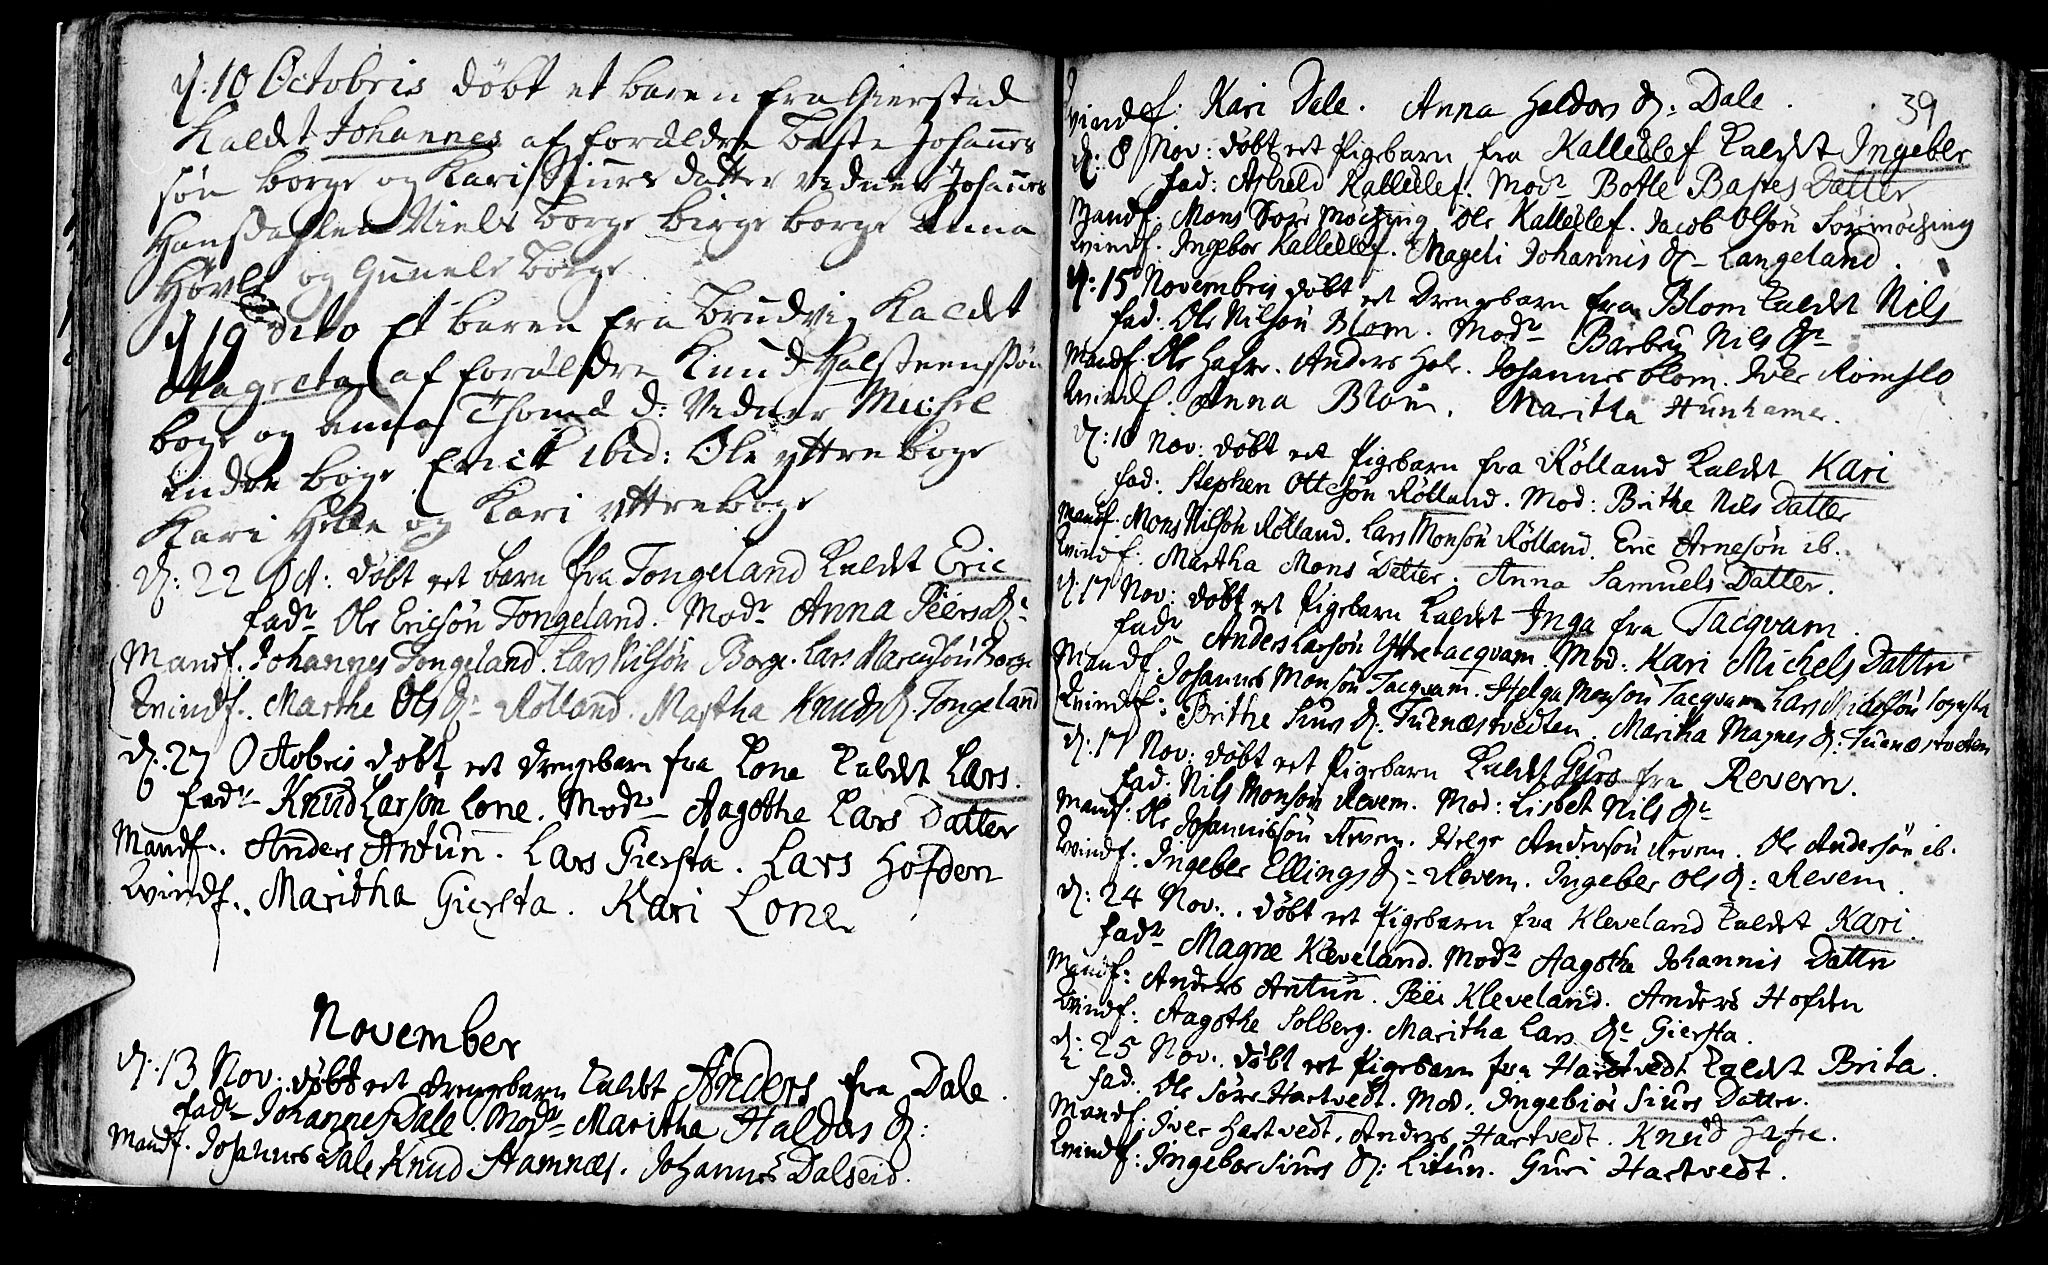 d: 10 Octobris döbt et baren fra Giersted
Kaldt Johannes af foräldre Baste Johannes
sön borge og Kari Siurs datter vedner Johannes
Hansdahlen Niels borge birge borge anna
Hövle og Gunele borge
d 19 dito Et baren fra Trudvig Kaldt
Magreta af foräldre Knud Halsteenssön
boge og anna Thoma d: Vedner Michel
indre boge Erick ibid: Ole yttre boge
Kari Helle og Kari yttreboge
d: 22 Oct: döbt eet barn fra Tongeland Kaldet Eric
fadr Ole Ericsön Tongeland. Modr Anna Peersdr
Mandf. Johannes Tongeland. Lars Nilsön Borge. Lars Borge
Kvindf. Marthe Ols dr Rölland. Martha Knuds d. Tongeland
d: 27 Octobris döbt eet drengebarn fra Lone Kaldet Lars.
fadr Knud Larsön Lone. Modr Aagothe Lars Datter
Mandf. Anders Antun. Lars Giersta. Lars Hofden
Kvindf. Maritha Giersta. Kari Lone
November
d. 13 Nov. döbt eet drengebarn Kaldet Anders fra Dale.
fadr Johannes Dale. Modr Maritha Haldors d:
Mandf. Johannes Dale Knud Stamnæs. Johannes Dalseid.
39
Kvindf: Kari Dale. Anna Haldors d: Dale.
d: 8 Nov: döbt eet Pigebarn fra Kallellef Kaldet Ingeber
fad: Kallellef. Modr Botle Bastes Datter
Mandf: Mons Ole Kallellef. Jacob Olsön
Kvindf. Ingebor Kallellef. Mageli Johannis dr Langeland.
d: 15 Novembris döbt eet Drengebarn fra Blom Kaldet Nils
fad: Ole Nilsön Blom. Modr Barbru Nils dr
Mandf. Ole Hafre. Anders Hole. Johannes Blom. Iver Römslo
Kvindf: Anna Blom. Maritha Hunhamer.
d: 10 Nov: döbt eet Pigebarn fra Rölland Kaldet Kari
fad: Stephen Ottesön Rölland. Mod: Brithe Nils Datter
Mandf. Mons Nilsön Rölland. Lars Monsön Rölland. Eric Arnesön ib.
Kvindf: Martha Mons Datter. Anna Samuels Datter.
d. 17 Nov: döbt eet Pigebarn Kaldet Inga fra Tacqvam.
fadr Anders Larsön Yttretacqvam. Mod: Kari Michels Datter
Mandf. Johannes Monsön Tacqvam. Helga Monsön Tacqvam Lars
Kvindf: Brithe Siurs d. Tuenæstvedten. Maritha Magnes d: Tuenæstveten
d. 17 Nov: döbt eet Pigebarn Kaldet Guro fra Revem.
fad: Nils Monsön Revem. Mod: Lisbet Nils dr
Mandf: Ole Johannissön Revem. Helge Andersön Revem. Ole Andersön ib.
Kvindf: Ingeber Ellings dr Revem. Ingeber Ols d: Revem.
d: 24 Nov: döbt eet Pigebarn fra Kleveland Kaldet Kari.
fadr Magne Kleveland. Modr Aagotha Johannis Datter
Mandf: Anders Antun. Peer Kleveland. Anders Hofden
Kvindf: Aagothe Solberg. Maritha Lars dr Giersta.
d: 25 Nov. döbt eet Pigebarn fra Hartvedt Kaldet Brita.
fad. Ole Söre Hartvedt. Mod: Ingebiör Siurs Datter.
Mandf: Iver Hartvedt, Anders Hartvedt. Knud Hafre.
Kvindf: Ingebor Siurs d: Litun. Guri Hartvedt.